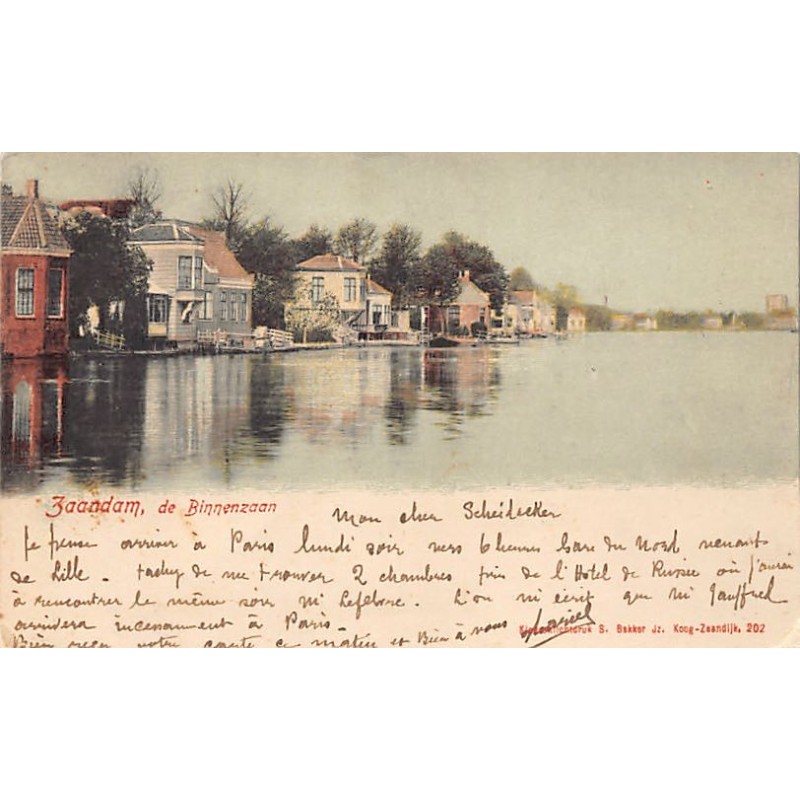 Zaandam, de Binnenzaan
Mon cher Scheidecker
Je pense arriver à Paris lundi soir vers 6 heures Gare du Nord, venant
de Lille - tachez de me trouver 2 chambres près de l'Hotel de Russie où j'aurai
à rencontrer le même soir Mr Lefebvre. L'on m'écrit que Mr Jauffred
arrivera incessament à Paris -
Bien reçu votre carte ce matin et Bien à vous
S. Bakker Jz. Koog-Zaandijk, 202